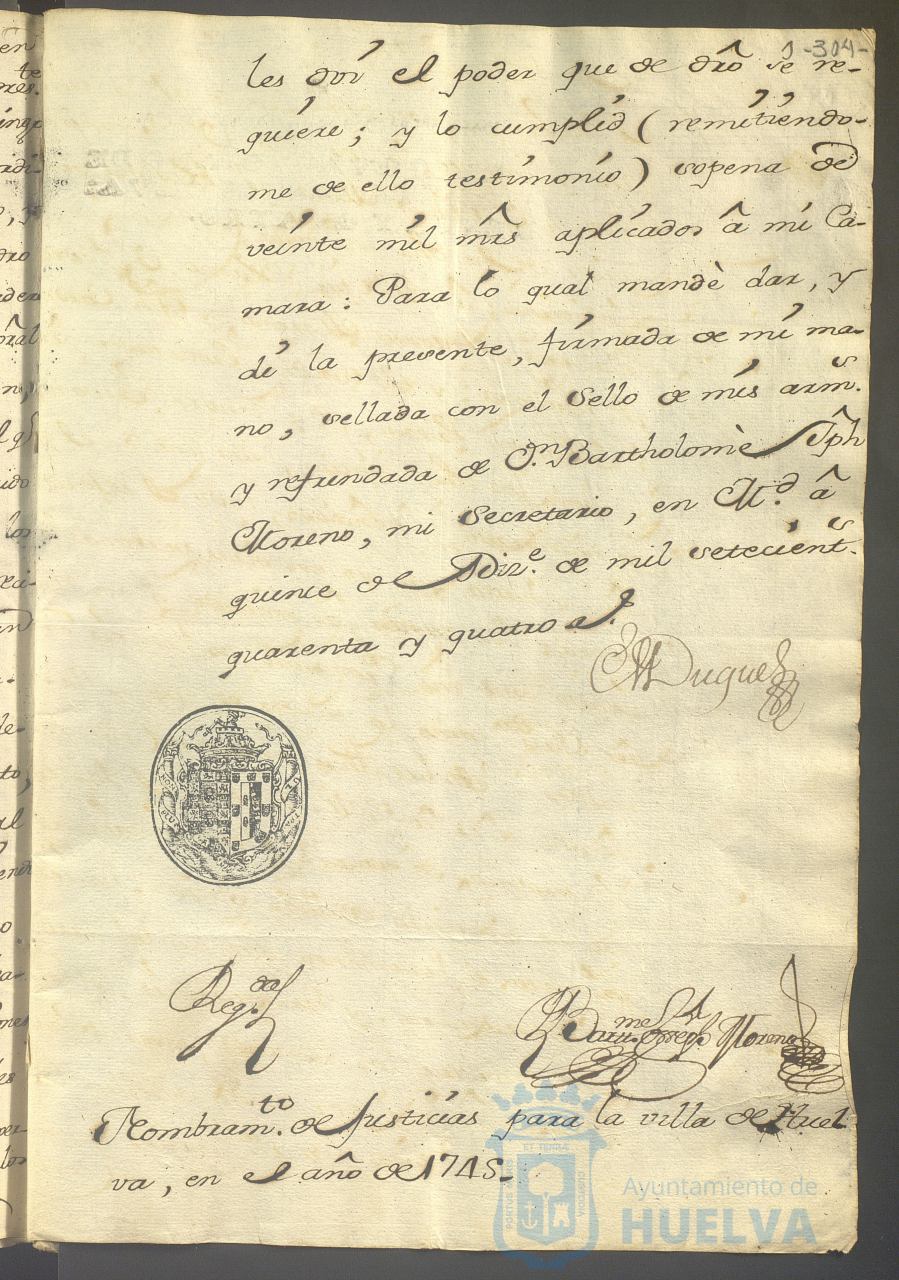 1-304-
les doi el poder que de dro se re-
quiere; y lo cumplid (remitiendo-
me de ello testimonio) sopena de
veinte mil mrs aplicados â mi Ca-
mara: Para lo qual mandè dar, y
di la presente, firmada de mi ma-
no, sellada con el Sello de mis arm.s
y refrendada de Dn. Bartholomè Jph
Moreno, mi Secretario, en M.d â
quince de Diz.e de mil setecient.s
quarenta y quatro a.s
El Duque
Reg.da
Bart.me Joseph Moreno
Nombram.to de Justicias para la villa de Huel-
va, en el año de 1745.
PORTUS MARIS
ET TERRAE
CUSTODIA
Ayuntamiento de
HUELVA